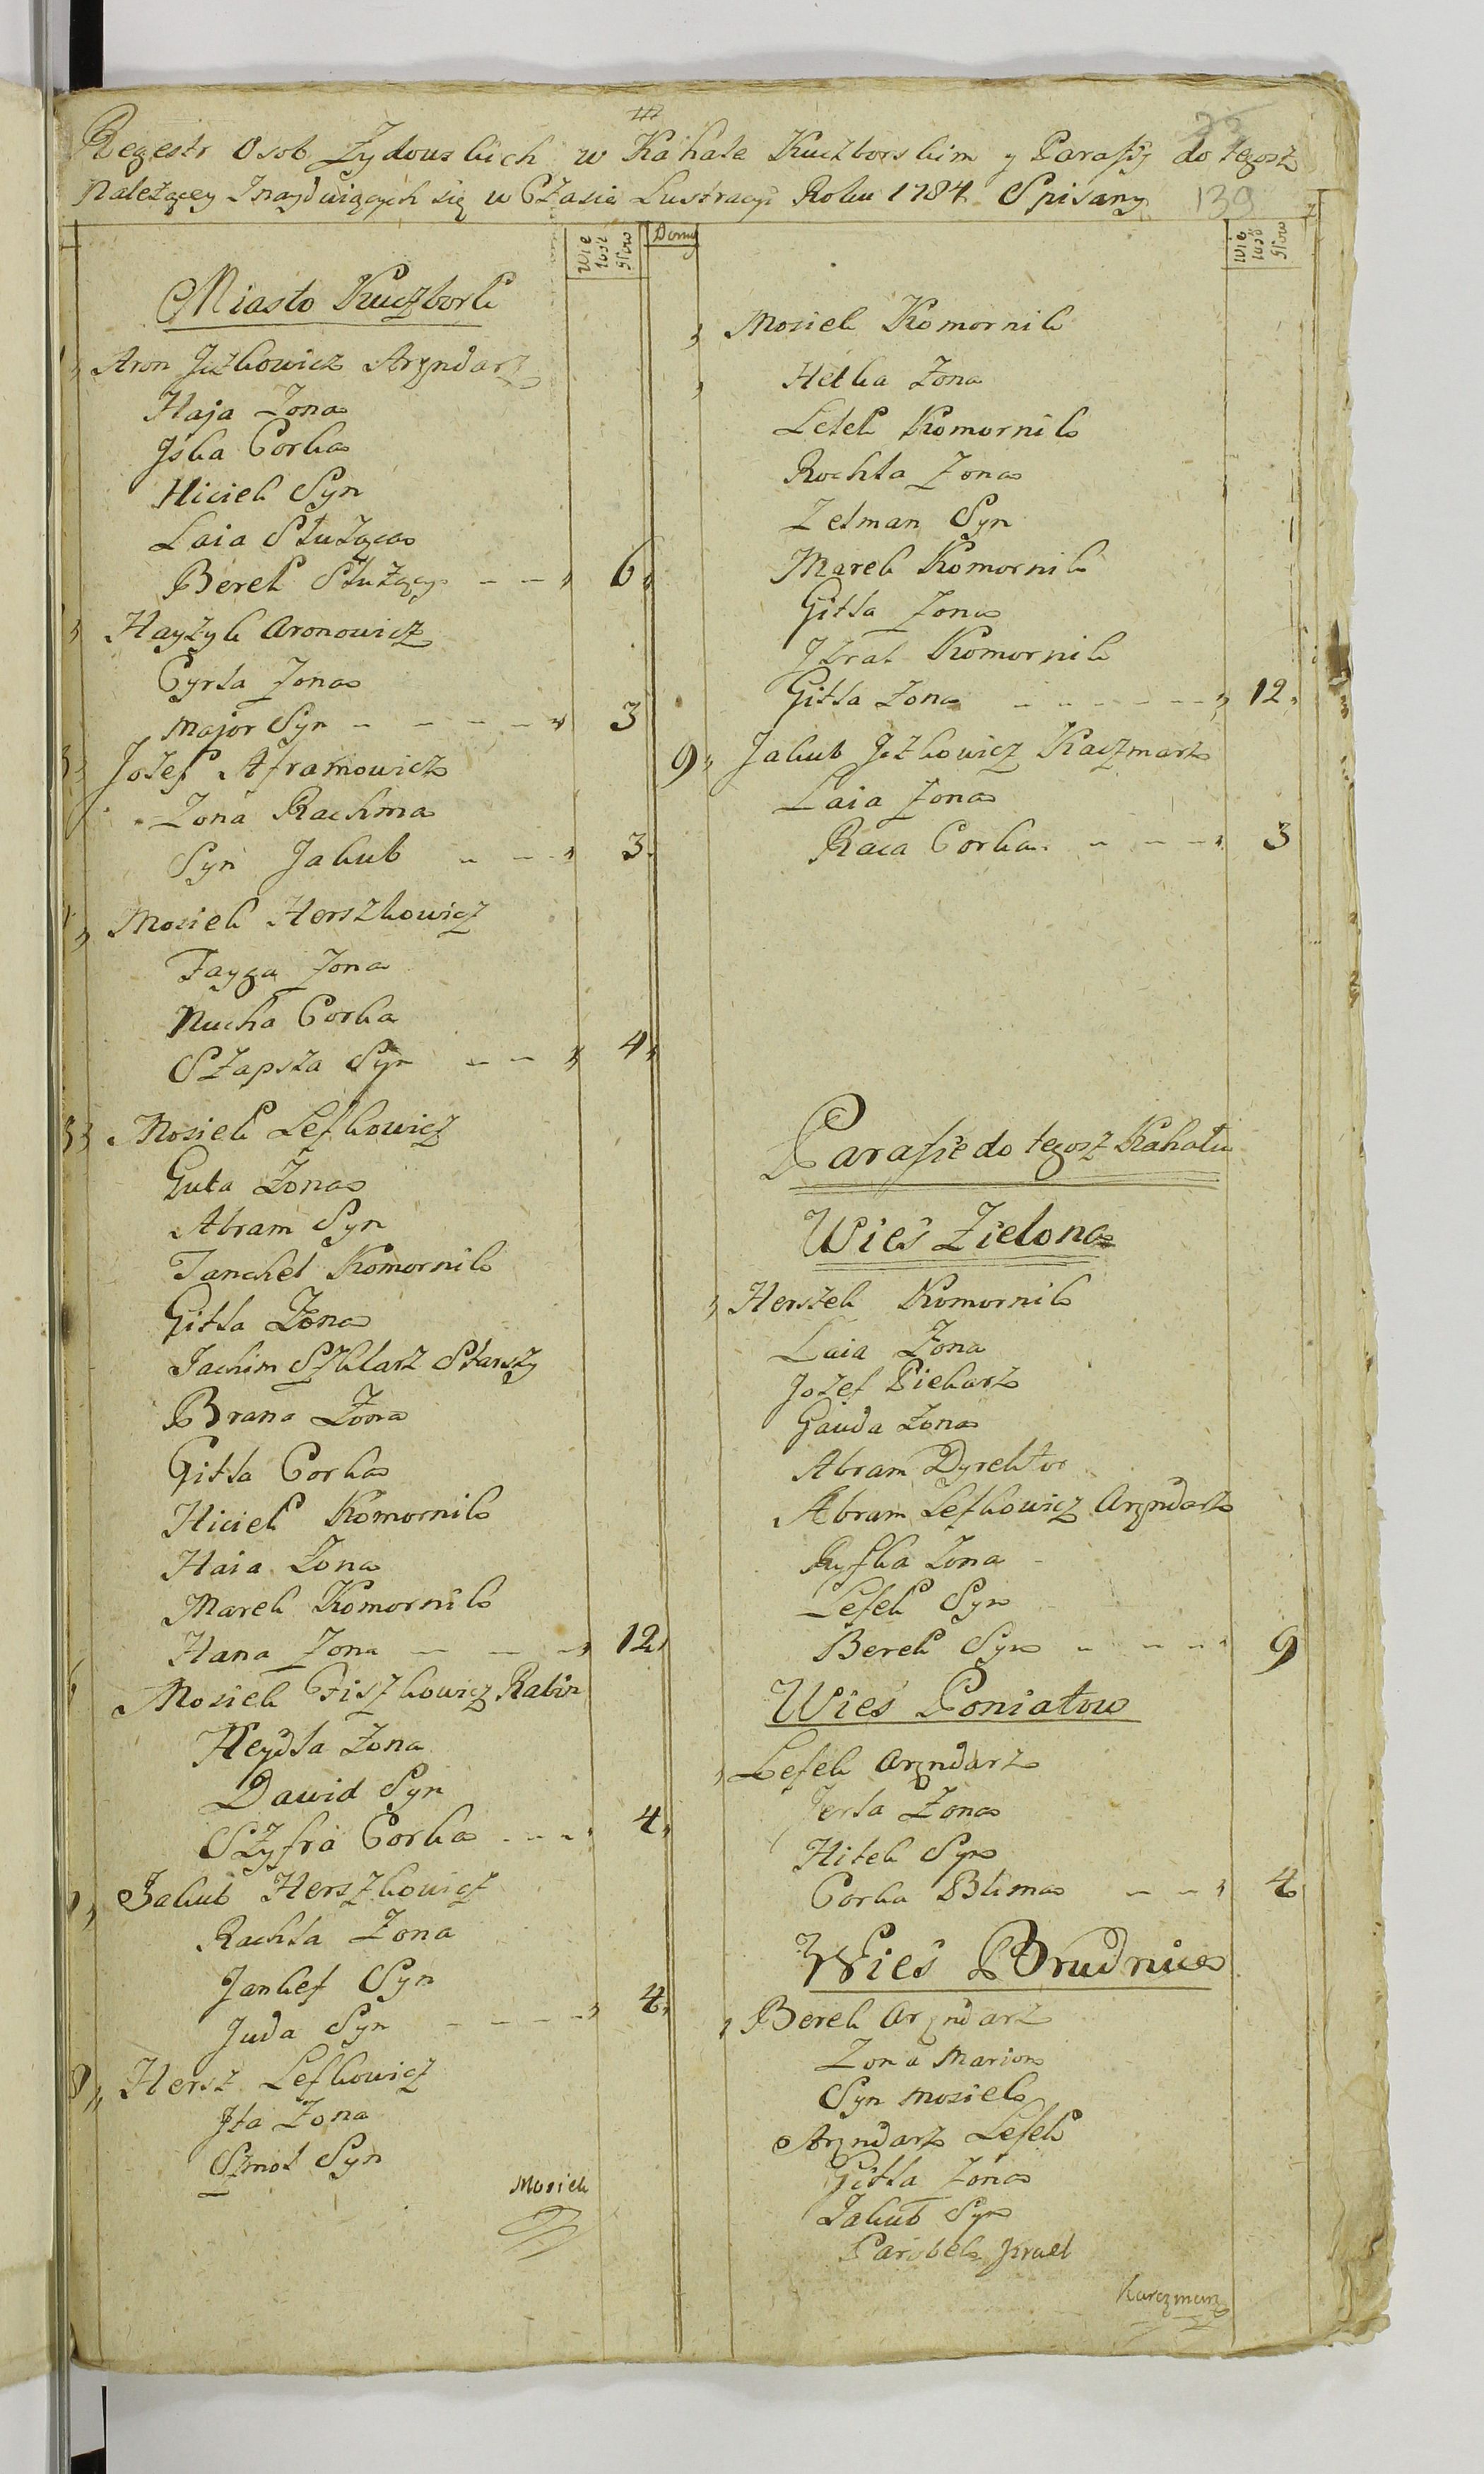 Regestr Osob Zydowskich w Kahale Kuczborskim y Parafij do tegosz
Należącey Znayduiących się w Czasie Lustracyi Roku 1784 Spisany
139
Wie
lość
głow
Domy
Miasto Kuczbork
Aron Jczkowicz Aręndarz
Haja Zona
Jska Corka
Hiciek Syn
Laia Służąca
Berek Służący 6
Hayzyk Aronowicz
Cyrla Zona
Major Syn 3
Jozef Aframowicz
Zona Rachma
Syn Jakub 3
Mosiek Herszkowicz
Fayga Zona
Nucha Corka
Szapsza Syn 4
Mosiek Lefkowicz
Guta Zona
Abram Syn
Tanchel Komornik
Gitla Zona
Jachim Szklarz Starszy
Brana Zona
Gitla Corka
Hiciek Komornik
Haia Zona
Marek Komornik
Hana Zona 12
Mosiek Fiszkowicz Rabin
Heydla Zona
Dawid Syn
Szyfra Corka 4
Jakub Herszkowicz
Rachla Zona
Jankef Syn
Juda Syn 4
8 Hersz Lefkowicz
Jta Zona
Szmol Syn
Mosiek
Wie
lość
głow
Mosiek Komornik
Hetka Zona
Lefek Komornik
Rochla Zona
Zelman Syn
Marek Komornik
Gitla Zona
Jzral Komornik
Gitla Zona 12
9 Jakub Jczkowicz Kaczmarz
Laia Zona
Raca Corka 3
Parafie do tegosz Kahału
Wieś Zielona
Herszek Komornik
Laia Zona
Jozef Piekarz
Gauda Zona
Abram Dyrektor
Abram Lefkowicz Aręndarz
Ryfka Zona
Lefek Syn
Berek Syn 9
Wieś Poniatow
Lefek Aręndarz
Jerla Zona
Hitek Syn
Corka Blima 4
Wieś Brudnice
Berek Aręndarz
Zona Marion
Syn Mosiek
Aręndarz Lefek
Gitla Zona
Jakub Syn
Parobek Jzrael
Karczmarz